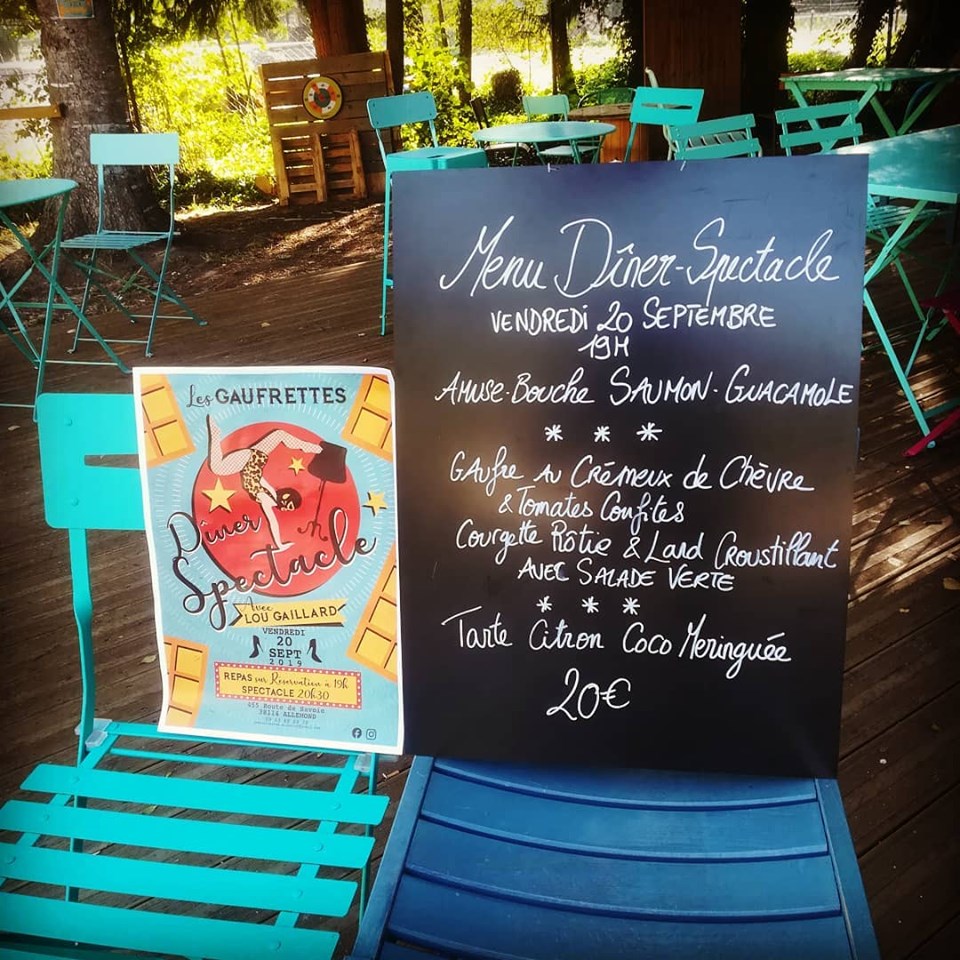 Les GAUFRETTES
Dîner
Spectacle
Avec
LOU GAILLARD
VENDREDI
20
SEPT
2019
REPAS sur Réservation à 19h
SPECTACLE 20h30
455 Route de Savoie
38114 ALLEMOND
Menu Dîner-Spectacle
VENDREDI 20 SEPTEMBRE
19H
AMUSE-BOUCHE SAUMON-GUACAMOLE
* * *
GAUFRE AU CRÉMEUX de CHÈVRE
& Tomates Confites
Courgette Rôtie & Lard Croustillant
AVEC SALADE VERTE
* * *
Tarte Citron Coco Meringuée
20€